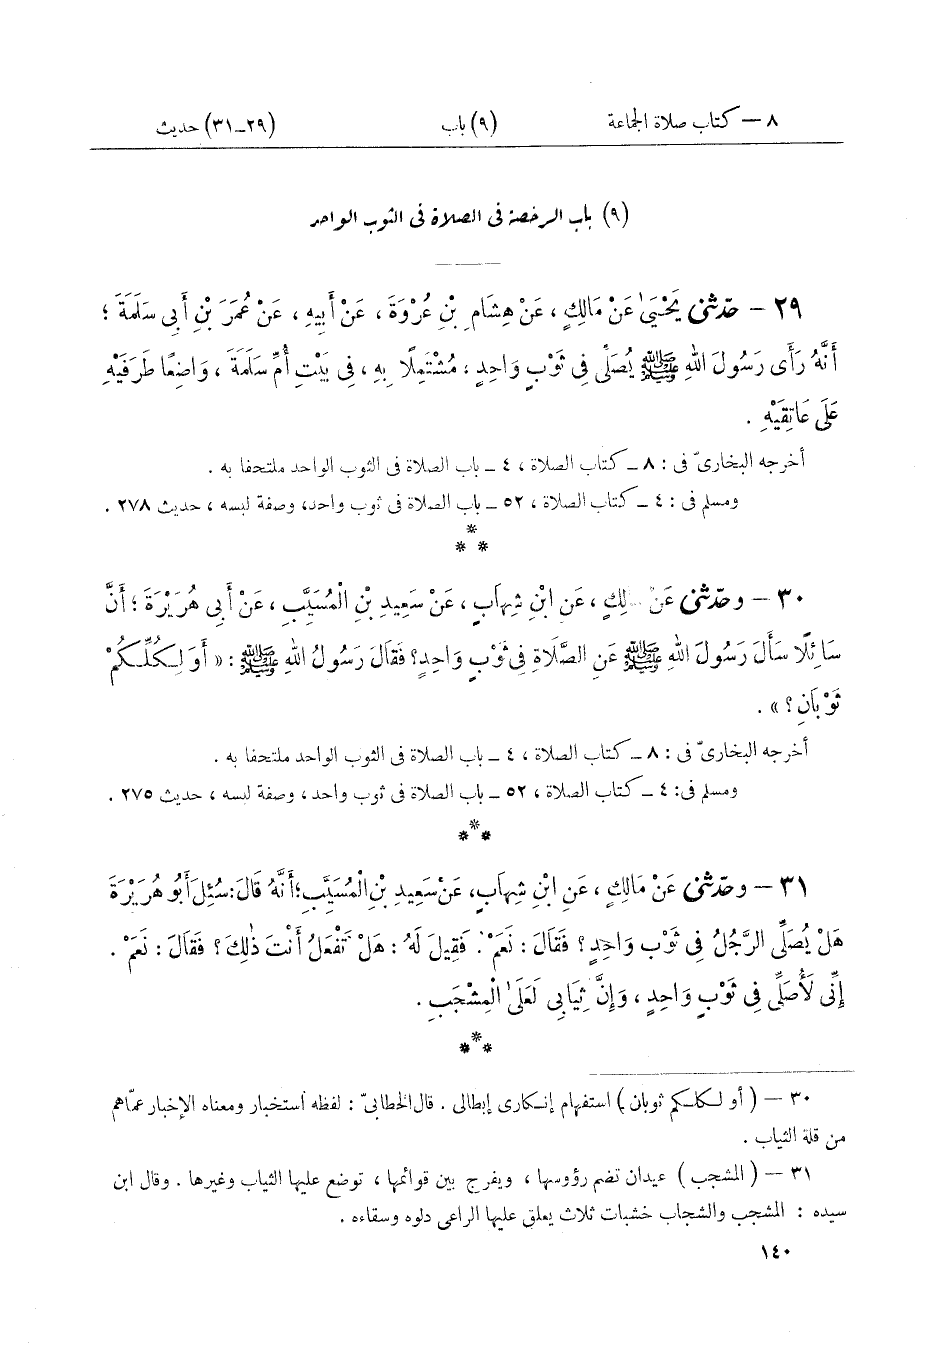 ٨ — كتاب صلاة الجماعة (٩) باب (٢٩-٣١) حديث
(٩) باب الرخصة فى الصلاة فى الثوب الواحد
٢٩ – حدّثنى يَحْيَىٰ عَنْ مَالِكٍ ، عَنْ هِشَامِ بْنِ عُرْوَةَ ، عَنْ أَبِيهِ ، عَنْ عُمَرَ بْنِ أَبِى سَلَمَةَ ؛
أَنَّهُ رَأَى رَسُولَ اللهِ ﷺ يُصَلِّى فِى ثَوْبٍ وَاحِدٍ ، مُشْتَمِلًا بِهِ ، فِى بَيْتِ أُمِّ سَلَمَةَ ، وَاضِعًا طَرَفَيْهِ
عَلَى عَاتِقَيْهِ .
أخرجه البخارىّ فى : ٨ ـ كتاب الصلاة ، ٤ ـ باب الصلاة فى الثوب الواحد ملتحفا به .
ومسلم فى : ٤ ـ كتاب الصلاة ، ٥٢ ـ باب الصلاة فى ثوب واحد، وصفة لبسه ، حديث ٢٧٨ .
*
* *
٣٠ – وحدّثنى عَنْ مَالِكٍ ، عَنِ ابْنِ شِهَابٍ ، عَنْ سَعِيدِ بْنِ الْمُسَيَّبِ ، عَنْ أَبِى هُرَيْرَةَ ؛ أَنَّ
سَائِلًا سَأَلَ رَسُولَ اللهِ ﷺ عَنِ الصَّلَاةِ فِى ثَوْبٍ وَاحِدٍ؟ فَقَالَ رَسُولُ اللهِ ﷺ : « أَوَ لِكُلِّكُمْ
ثَوْبَانِ ؟ » .
أخرجه البخارىّ فى : ٨ ـ كتاب الصلاة ، ٤ ـ باب الصلاة فى الثوب الواحد ملتحفا به .
ومسلم فى: ٤ ـ كتاب الصلاة ، ٥٢ ـ باب الصلاة فى ثوب واحد ، وصفة لبسه ، حديث ٢٧٥ .
*
* *
٣١ – وحدّثنى عَنْ مَالِكٍ ، عَنِ ابْنِ شِهَابٍ، عَنْ سَعِيدِ بْنِ الْمُسَيَّبِ؛ أَنَّهُ قَالَ: سُئِلَ أَبُو هُرَيْرَةَ
هَلْ يُصَلِّى الرَّجُلُ فِى ثَوْبٍ وَاحِدٍ ؟ فَقَالَ : نَعَمْ . فَقِيلَ لَهُ : هَلْ تَفْعَلُ أَنْتَ ذٰلِكَ؟ فَقَالَ : نَعَمْ .
إِنِّى لَأُصَلِّى فِى ثَوْبٍ وَاحِدٍ ، وَإِنَّ ثِيَابِى لَعَلَى الْمِشْجَبِ .
*
* *
٣٠ – ( أو لكلكم ثوبان ) استفهام إنكارى إبطالى . قال الخطابىّ : لفظه استخبار ومعناه الإخبار عمّاهم
من قلة الثياب .
٣١ – ( المشجب ) عيدان تضم رؤوسها ، ويفرج بين قوائمها ، توضع عليها الثياب وغيرها . وقال ابن
سيده : المشجب والشجاب خشبات ثلاث يعلق عليها الراعى دلوه وسقاءه .
١٤٠